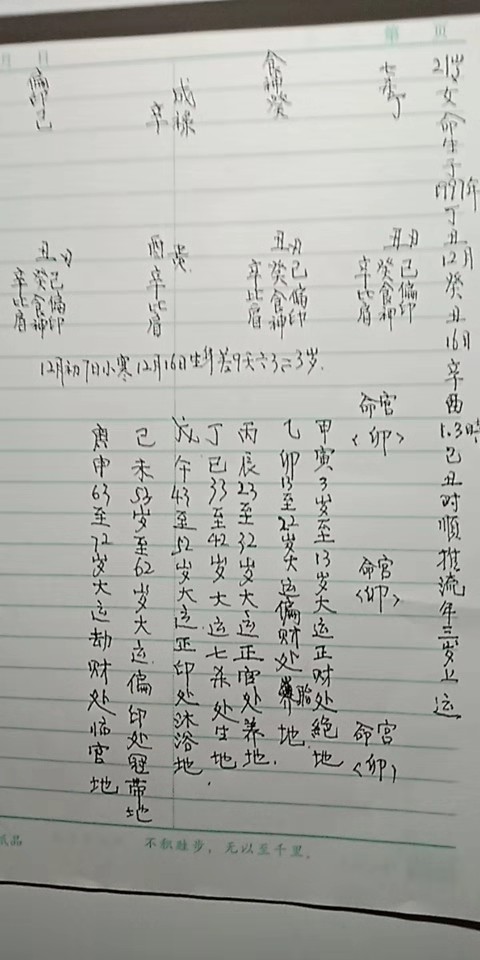 21岁女命生于1997年丁丑12月癸丑16日辛酉1.3时己丑时顺推流年三岁上运
七杀丁
食神癸
成禄
辛
偏印己
丑月
己偏印
癸食神
辛比肩
丑月
己偏印
癸食神
辛比肩
酉
辛比肩
丑月
己偏印
癸食神
辛比肩
12月初7日小寒12月16日生 差9天六3二3岁.
命宫
<卯>
命宫
<卯>
命宫
<卯>
甲寅3岁至13岁大运正财处絶地
乙卯13至22岁大运偏财处胎地.
丙辰23至32岁大运正官处养地.
丁巳33至42岁大运七杀处生地.
戊午43至52岁大运正印处沐浴地
己未53岁至62岁大运偏印处冠带地
庚申63至72岁大运劫财处临官地
第 页
月 日
纸品
不积跬步，无以至千里。